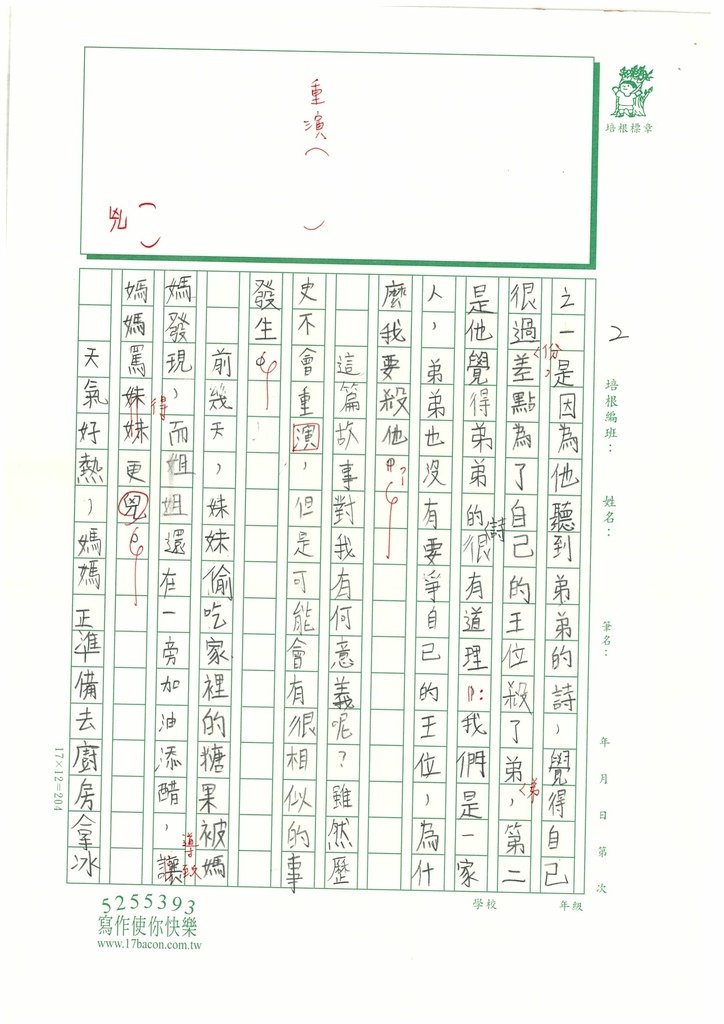 重演（　）
兇（　）
培根標章
2
培根編班：
姓名：
筆名：
年　月　日　第　次
之一是因為他聽到弟弟的詩，覺得自己
很過份，差點為了自己的王位殺了弟弟，第二
是他覺得弟弟的詩很有道理：我們是一家
人，弟弟也沒有要爭自己的王位，為什
麼我要殺他？
這篇故事對我有何意義呢？雖然歷
史不會重演，但是可能會有很相似的事
發生。
前幾天，妹妹偷吃家裡的糖果被媽
媽發現，而姐姐還在一旁加油添醋，讓導致
媽媽罵得妹妹更兇。
天氣好熱，媽媽正準備去廚房拿冰
17×12=204
學校
年級
5255393
寫作使你快樂
www.17bacon.com.tw